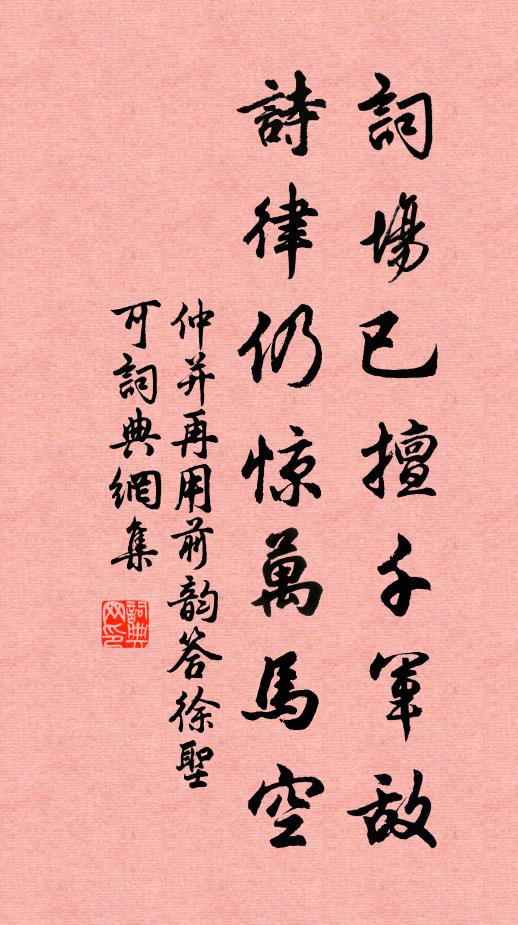 詞場已擅千軍敵
詩律仍惊萬馬空
仲并再用前韵答徐聖
可詞典網集
詞典
网印